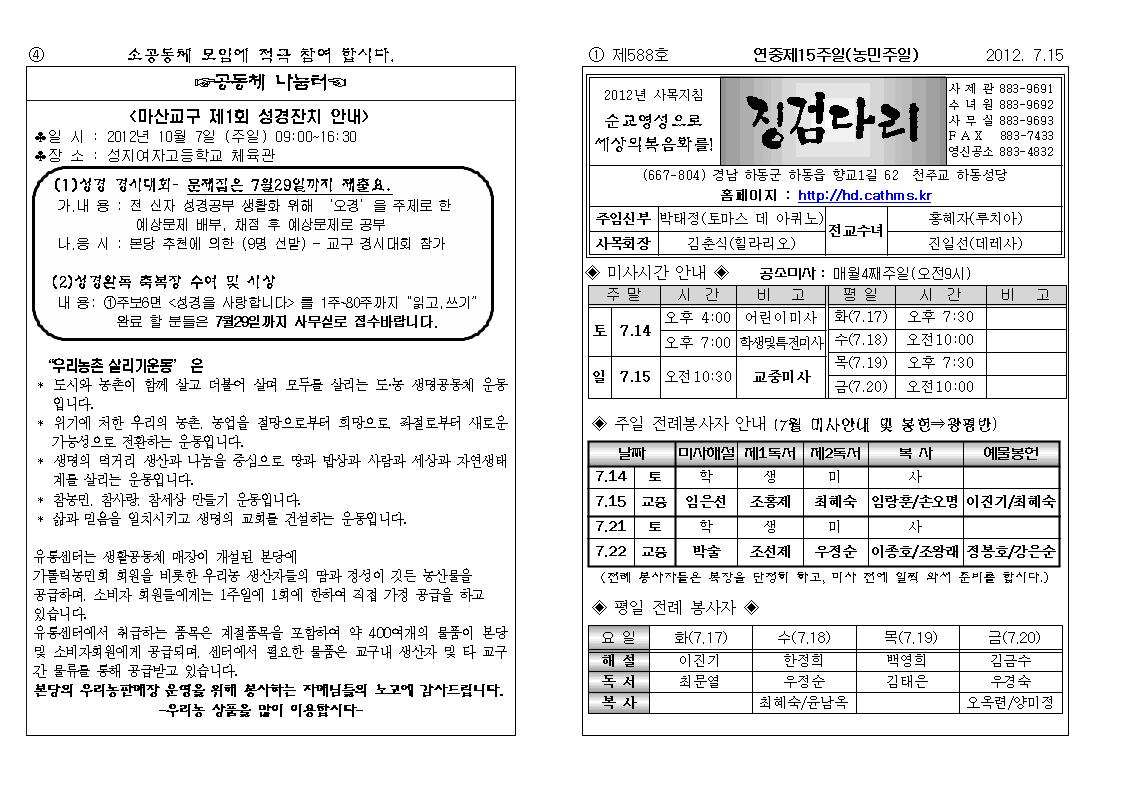 ④ 소공동체 모임에 적극 참여 합시다.
☞공동체 나눔터☜
<마산교구 제1회 성경잔치 안내>
♣일 시 : 2012년 10월 7일 (주일) 09:00~16:30
♣장 소 : 성지여자고등학교 체육관
(1)성경 경시대회- 문제집은 7월29일까지 제출요.
가.내 용 : 전 신자 성경공부 생활화 위해 ‘오경’을 주제로 한
예상문제 배부, 채점 후 예상문제로 공부
나.응 시 : 본당 추천에 의한 (9명 선발) - 교구 경시대회 참가
(2)성경완독 축복장 수여 및 시상
내 용: ①주보6면 <성경을 사랑합니다> 를 1주~80주까지 “읽고,쓰기”
완료 할 분들은 7월29일까지 사무실로 접수바랍니다.
“우리농촌 살리기운동” 은
* 도시와 농촌이 함께 살고 더불어 살며 모두를 살리는 도·농 생명공동체 운동
입니다.
* 위기에 처한 우리의 농촌, 농업을 절망으로부터 희망으로, 좌절로부터 새로운
가능성으로 전환하는 운동입니다.
* 생명의 먹거리 생산과 나눔을 중심으로 땅과 밥상과 사람과 세상과 자연생태
계를 살리는 운동입니다.
* 참농민, 참사랑, 참세상 만들기 운동입니다.
* 삶과 믿음을 일치시키고 생명의 교회를 건설하는 운동입니다.
유통센터는 생활공동체 매장이 개설된 본당에
가톨릭농민회 회원을 비롯한 우리농 생산자들의 땀과 정성이 깃든 농산물을
공급하며, 소비자 회원들에게는 1주일에 1회에 한하여 직접 가정 공급을 하고
있습니다.
유통센터에서 취급하는 품목은 계절품목을 포함하여 약 400여개의 물품이 본당
및 소비자회원에게 공급되며, 센터에서 필요한 물품은 교구내 생산자 및 타 교구
간 물류를 통해 공급받고 있습니다.
본당의 우리농판매장 운영을 위해 봉사하는 자매님들의 노고에 감사드립니다.
-우리농 상품을 많이 이용합시다-
① 제588호 연중제15주일(농민주일) 2012. 7.15
2012년 사목지침
순교영성으로
세상의복음화를!
징검다리
사 제 관 883-9691
수 녀 원 883-9692
사 무 실 883-9693
F A X 883-7433
영신공소 883-4832
(667-804) 경남 하동군 하동읍 향교1길 62 천주교 하동성당
홈페이지 : http://hd.cathms.kr
주임신부 박태정(토마스 데 아퀴노) 전교수녀 홍혜자(루치아)
사목회장 김춘식(힐라리오) 진일선(데레사)
◈ 미사시간 안내 ◈ 공소미사 : 매월4째주일(오전9시)
주 말 시 간 비 고 평 일 시 간 비 고
토 7.14 오후 4:00 어린이미사 화(7.17) 오후 7:30
오후 7:00 학생및특전미사 수(7.18) 오전10:00
일 7.15 오전10:30 교중미사 목(7.19) 오후 7:30
금(7.20) 오전10:00
◈ 주일 전례봉사자 안내 (7월 미사안내 및 봉헌⇒광평반)
날짜 미사해설 제1독서 제2독서 복 사 예물봉헌
7.14 토 학 생 미 사
7.15 교중 임은선 조홍제 최혜숙 임랑훈/손오명 이진기/최혜숙
7.21 토 학 생 미 사
7.22 교중 박술 조선제 우정순 이종호/조왕래 정봉호/강은순
(전례 봉사자들은 복장을 단정히 하고, 미사 전에 일찍 와서 준비를 합시다.)
◈ 평일 전례 봉사자 ◈
요 일 화(7.17) 수(7.18) 목(7.19) 금(7.20)
해 설 이진기 한정희 백영희 김금수
독 서 최문열 우정순 김태은 우경숙
복 사 최혜숙/윤남옥 오옥련/양미정